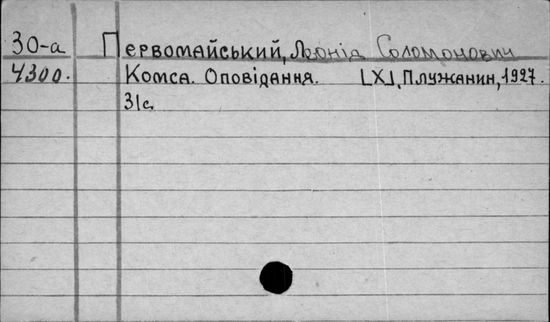 30-а Первомайський, Леонід Соломонович
4300. Комса. Оповідання. [Х], Плужанин, 1927.
31с.